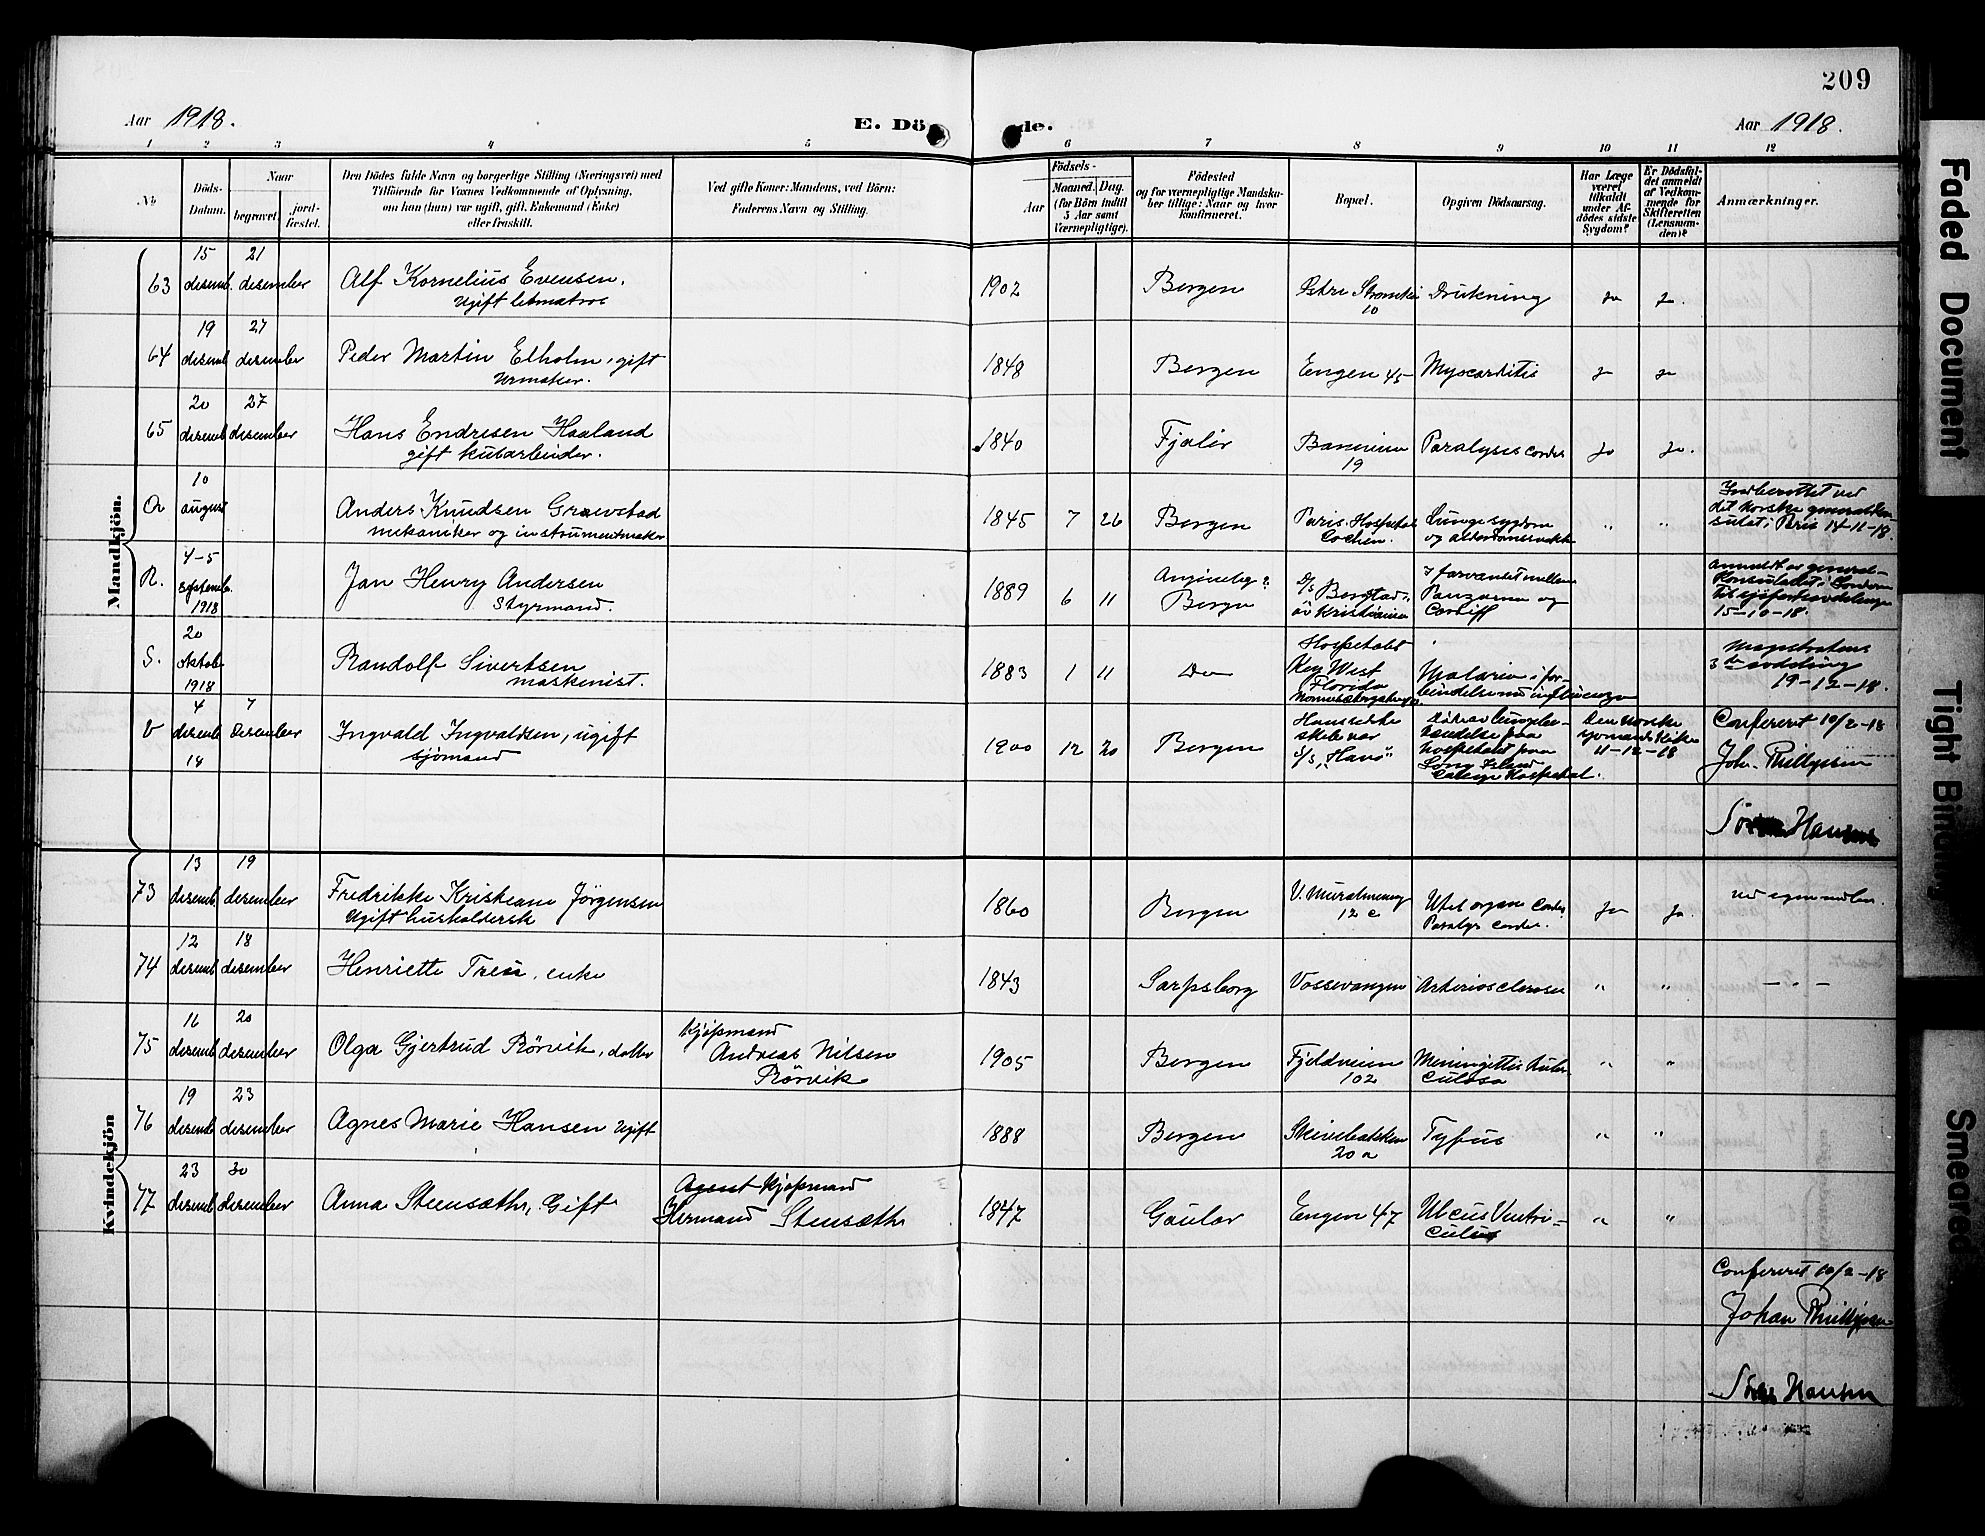 209
Aar 1918.
E. Dö
de.
Aar 1918.
1 2 3 4 5 6 7 8 9 10 11 12
No
Döds-
Datum.
Naar
begravet.
jord-
fæstet.
Den Dödes fulde Navn og borgerlige Stilling (Næringsvei) med
Tilföiende for Voxnes Vedkommende af Oplysning,
om han (hun) var ugift, gift, Enkemand (Enke)
eller fraskilt.
Ved gifte Koner: Mandens, ved Börn:
Faderens Navn og Stilling.
Födsels-
Aar
Maaned.
Dag.
(for Börn indtil
5 Aar samt
Værnepligtige).
Födested
og for værnepligtige Mandsku-
ber tillige: Naar og hvor
konfirmeret.
Bopæl.
Opgiven Dödsaarsag.
Har Læge
været
tilkaldt
under Af-
dödes sidste
Sygdom?
Er Dödsfal-
det anmeldt
af Vedkom-
mende for
Skifteretten
(Lensman-
den)?
Anmærkninger.
Mandkjön.
63
15
desemb.
21
desember
Alf Kornelius Evensen,
ugift letmatros
1902
Bergen
10
Drukning
ja
ja.
64
19
desemb
27
desember
Peder Martin Elholm, gift
urmaker.
1848
Bergen
Engen 45
Myocarditis
ja
ja
65
20
desemb
27
desember
Hans Endresen Haaland
gift
1840
Fjaler
19
Paralysis cordis
ja
ja.
10
august
Anders Knudsen Gravstad
mekaniker og instrumentmaker
1845
7
26
Bergen
Paris. Hospital
Cochin.
Lungesygdom
og
"
"
Indberettet ved
det norske generalkon
sulat i Paris 14-11-18.
R.
4-5
septemb.
1918
Jan Henry Andersen
Styrmand.
1889
6
11
Angivelig?
Bergen
D/S
av Kristiania
mellem
og
Cardiff
anmeldt av general-
konsulatet i London
til
15-10-18.
S.
20
oktob
1918
Randolf Sivertsen
maskinist.
1883
1
11
Do
Hospitalet
Key West
Florida
Malaria i for-
bindelse med influenza
Magistratens
3die avdeling
19-12-18.
V
4
desemb
18
7
Desember
Ingvald Ingvaldsen, ugift
sjömand
1900
12
20
Bergen
S/S "Hanö"
hospitalet paa
Long Island
College Hospital.
Den norske
sjömandskirke
11-12-18
Confereret 10/2-18
Joh. Phillipsen
Hansen
Kvindekjön
73
13
desemb
19
desember
Fredrikke Kristiane Jørgensen
ugift husholderske
1860
Bergen
V. Muralmening
12 c
organ cordis
Paralys cordis.
ja
ja.
74
12
desemb
18
desember
Henriette Treu, enke
1843
Sarpsborg
Vossevangen
Arteriosclerose
"
"
— " —
75
16
desemb
20
desember
Olga Gjertrud Rörvik, datter
Kjøpmand
Andreas Nilsen
Rörvik
1905
Bergen
Fjeldveien
102
Meningittis tuber
culosa
"
"
76
19
desemb
23
desember
Agnes Marie Hansen ugift
1888
Bergen
Skivebakken
20 a
Tyfus
"
"
77
23
desemb
30
desember
Anna Stensæth, Gift
Agent kjøpmand
Hermand Stensæth
1847
Gaular
Engen 47
Ulcus Ventri-
culus
"
"
Confereret 10/2-18
Johan Phillipsen
Hansen
Faded Document
Tight Binding
Smeared